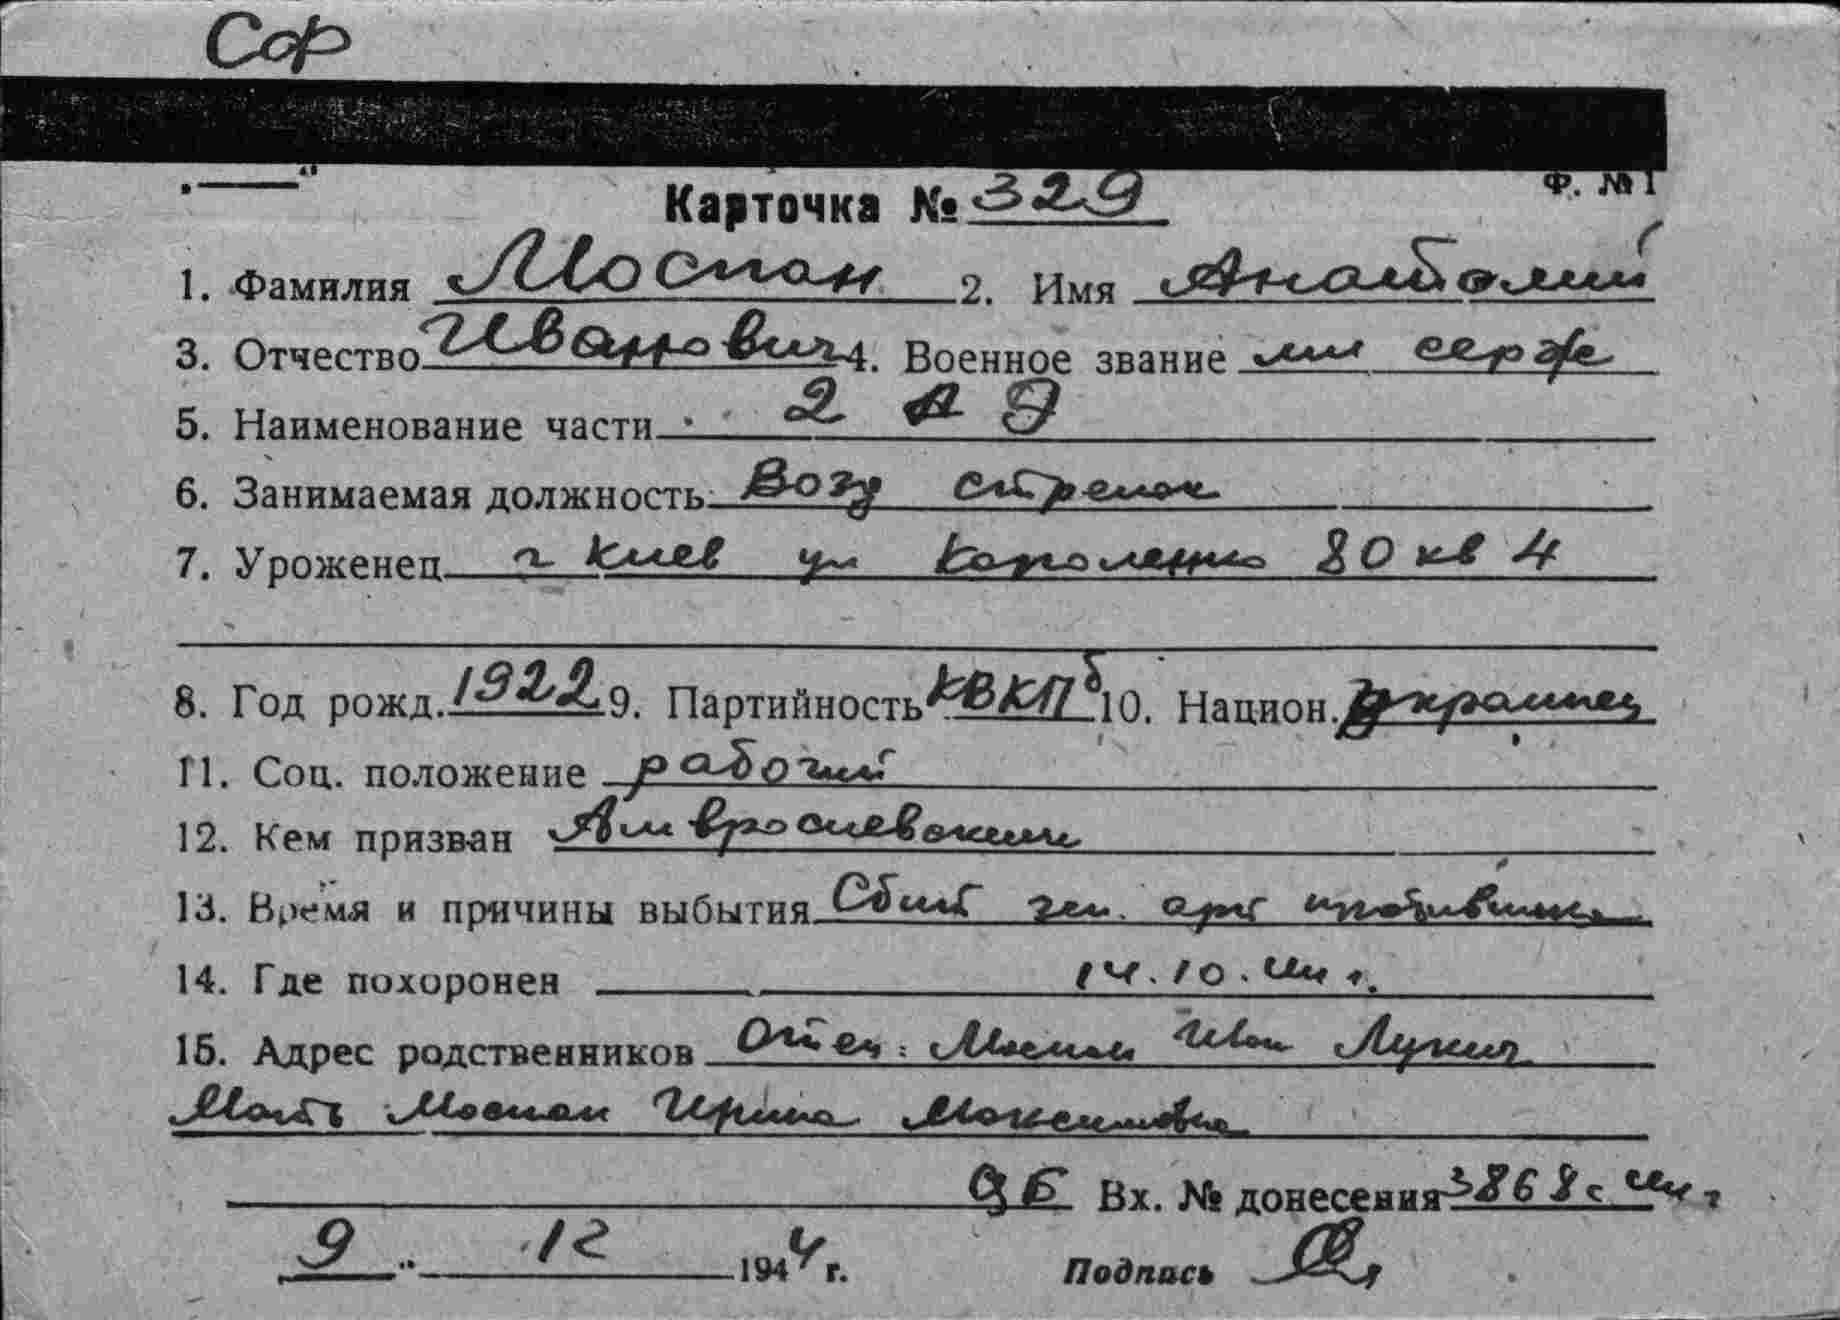 Соф
Ф. № 1
Карточка № 329
1. Фамилия Моспан 2. Имя Анатолий
3. Отчество Иванович 4. Военное звание мл серж
5. Наименование части 2 А Э
6. Занимаемая должность Возд стрелок
7. Уроженец г Киев ул Короленко 80 кв 4
8. Год рожд. 1922 9. Партийность КВКПб 10. Национ. украинец
11. Соц. положение рабочий
12. Кем призван Амвросиевским
13. Время и причины выбытия Сбит зен. арт противника
14. Где похоронен 14.10.44 г.
15. Адрес родственников Отец: Моспан Иван Лукич
Мать Моспан Ирина Максимовна
Вх. № донесения 3868с 44 г
9 " 12 1944 г. Подпись